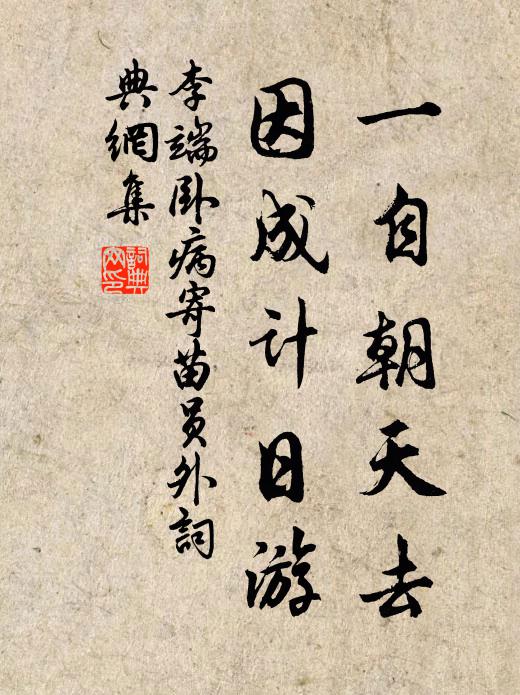 一自朝天去
因成计日游
李端卧病寄苗员外詞
典網集
詞典